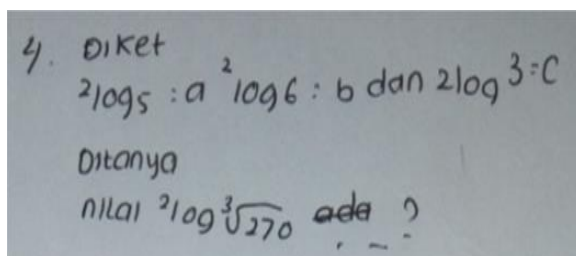 4. Diket
²log5 : a ²log6 : b dan 2log 3 = C
Ditanya
nilai ²log ∛270 ada ?